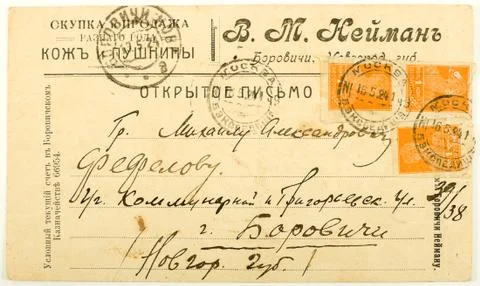 СКУПКА и ПРОДАЖА
РАЗНАГО РОДА
КОЖЪ и ПУШНИНЫ
В. М. Нейманъ
Боровичи, Новгород. губ.
ОТКРЫТОЕ ПИСЬМО
Гр. Михаилу Александровичу
Фефелову.
Уг. Коммунарной и Григорьевск. ул. 39/38
г. Боровичи
Новгор. Губ.
Условный текущій счетъ въ Боровичском
Казначействѣ 66954.
Боровичи Нейману.
МОСКВА
МОСКВА
16.5.24
МОСКВА
16.5.24